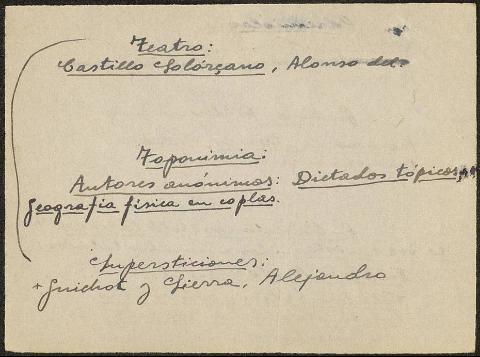 Teatro:
Castillo Solórçano, Alonso del.
Toponimia:
Autores anónimos: Dictados tópicos,
geografía física en coplas.
Supersticiones:
+ Guichot y Sierra, Alejandro